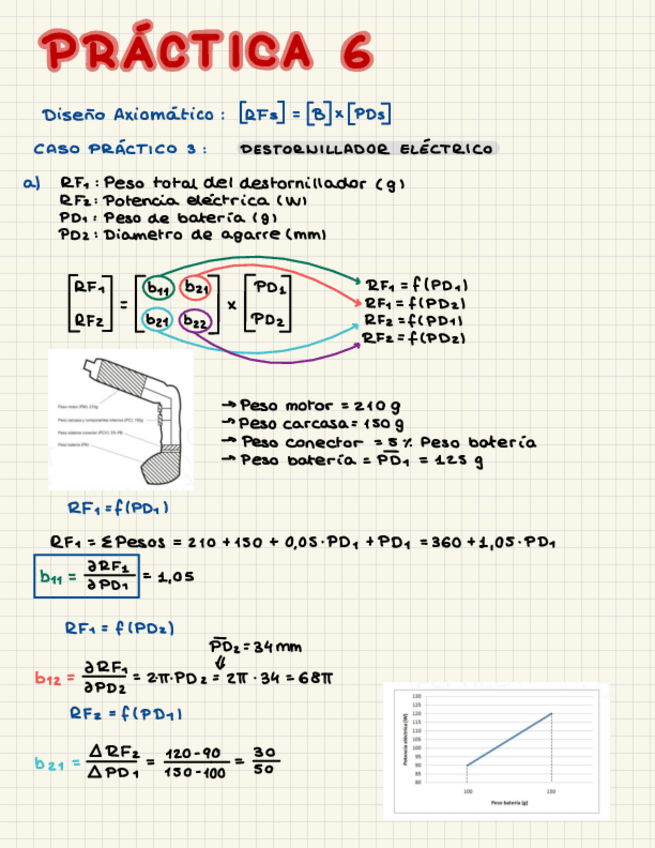 PRÁCTICA 6
Diseño Axiomático : [RFs] = [B] x [PDs]
CASO PRÁCTICO 3 : DESTORNILLADOR ELÉCTRICO
a) RF₁ : Peso total del destornillador (g)
RF₂ : Potencia eléctrica (W)
PD₁ : Peso de batería (g)
PD₂ : Diametro de agarre (mm)
[RF₁ RF₂] = [b₁₁ b₂₁ b₂₁ b₂₂] x [PD₁ PD₂]
RF₁ = f(PD₁)
RF₁ = f(PD₂)
RF₂ = f(PD₁)
RF₂ = f(PD₂)
Peso motor (PM): 210g
Peso carcasa y componentes internos (PC): 150g
Peso batería (PB)
→ Peso motor = 210 g
→ Peso carcasa = 150 g
→ Peso conector = 5 % Peso batería
→ Peso batería = P̅D̅₁ = 125 g
RF₁ = f(PD₁)
RF₁ = ΣPesos = 210 + 150 + 0,05·PD₁ + PD₁ = 360 + 1,05·PD₁
b₁₁ = ∂RF₁/∂PD₁ = 1,05
RF₁ = f(PD₂)
P̅D₂ = 34 mm
⇓
b₁₂ = ∂RF₁/∂PD₂ = 2π·PD₂ = 2π·34 = 68π
RF₂ = f(PD₁)
b₂₁ = ΔRF₂/ΔPD₁ = 120-90/150-100 = 30/50
Potencia eléctrica (W)
130
125
120
115
110
105
100
95
90
85
80
100 150
Peso batería (g)